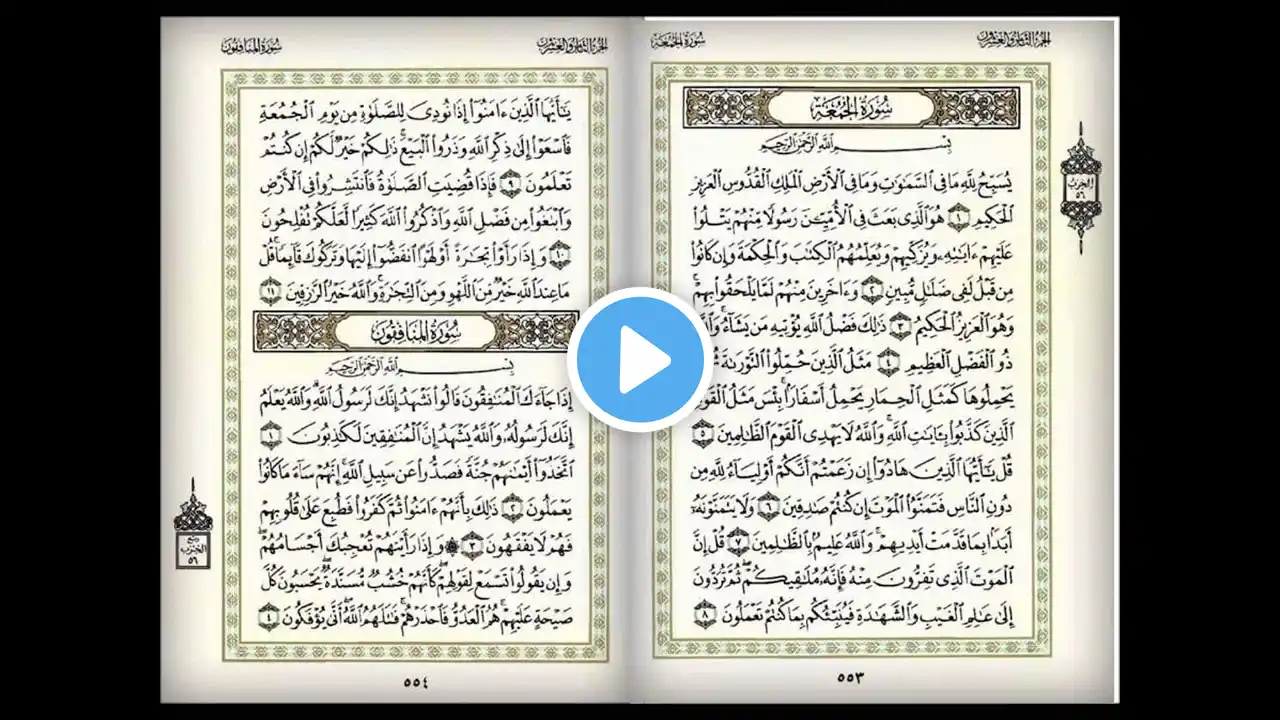 سُورَةُ الجُمُعَةِ
الجزء الثامن والعشرون
سُورَةُ الجُمُعَةِ
بِسْمِ اللَّهِ الرَّحْمَٰنِ الرَّحِيمِ
يُسَبِّحُ لِلَّهِ مَا فِي السَّمَٰوَٰتِ وَمَا فِي الْأَرْضِ الْمَلِكِ الْقُدُّوسِ الْعَزِيزِ
الْحَكِيمِ ١ هُوَ الَّذِي بَعَثَ فِي الْأُمِّيِّـۧنَ رَسُولًا مِّنْهُمْ يَتْلُوا۟
عَلَيْهِمْ ءَايَٰتِهِۦ وَيُزَكِّيهِمْ وَيُعَلِّمُهُمُ الْكِتَٰبَ وَالْحِكْمَةَ وَإِن كَانُوا۟
مِن قَبْلُ لَفِي ضَلَٰلٍ مُّبِينٍ ٢ وَءَاخَرِينَ مِنْهُمْ لَمَّا يَلْحَقُوا۟ بِهِمْ ۚ
وَهُوَ الْعَزِيزُ الْحَكِيمُ ٣ ذَٰلِكَ فَضْلُ اللَّهِ يُؤْتِيهِ مَن يَشَآءُ ۚ
ذُو الْفَضْلِ الْعَظِيمِ ٤ مَثَلُ الَّذِينَ حُمِّلُوا۟ التَّوْرَىٰةَ
يَحْمِلُوهَا كَمَثَلِ الْحِمَارِ يَحْمِلُ أَسْفَارًۢا ۚ بِئْسَ مَثَلُ
الَّذِينَ كَذَّبُوا۟ بِـَٔايَٰتِ اللَّهِ ۚ وَاللَّهُ لَا يَهْدِي الْقَوْمَ الظَّٰلِمِينَ ٥
قُلْ يَٰٓأَيُّهَا الَّذِينَ هَادُوٓا۟ إِن زَعَمْتُمْ أَنَّكُمْ أَوْلِيَآءُ لِلَّهِ مِن
دُونِ النَّاسِ فَتَمَنَّوُا۟ الْمَوْتَ إِن كُنتُمْ صَٰدِقِينَ ٦ وَلَا يَتَمَنَّوْنَهُۥٓ
أَبَدًۢا بِمَا قَدَّمَتْ أَيْدِيهِمْ ۚ وَاللَّهُ عَلِيمٌۢ بِالظَّٰلِمِينَ ٧ قُلْ إِنَّ
الْمَوْتَ الَّذِي تَفِرُّونَ مِنْهُ فَإِنَّهُۥ مُلَٰقِيكُمْ ۖ ثُمَّ تُرَدُّونَ
إِلَىٰ عَٰلِمِ الْغَيْبِ وَالشَّهَٰدَةِ فَيُنَبِّئُكُم بِمَا كُنتُمْ تَعْمَلُونَ ٨
الحزب
٥٦
٥٥٣
الجزء الثامن والعشرون
سُورَةُ المُنَافِقُونَ
يَٰٓأَيُّهَا الَّذِينَ ءَامَنُوٓا۟ إِذَا نُودِيَ لِلصَّلَوٰةِ مِن يَوْمِ الْجُمُعَةِ
فَاسْعَوْا۟ إِلَىٰ ذِكْرِ اللَّهِ وَذَرُوا۟ الْبَيْعَ ۚ ذَٰلِكُمْ خَيْرٌ لَّكُمْ إِن كُنتُمْ
تَعْلَمُونَ ٩ فَإِذَا قُضِيَتِ الصَّلَوٰةُ فَانتَشِرُوا۟ فِي الْأَرْضِ
وَابْتَغُوا۟ مِن فَضْلِ اللَّهِ وَاذْكُرُوا۟ اللَّهَ كَثِيرًا لَّعَلَّكُمْ تُفْلِحُونَ
١٠ وَإِذَا رَأَوْا۟ تِجَٰرَةً أَوْ لَهْوًا انفَضُّوٓا۟ إِلَيْهَا وَتَرَكُوكَ قَآئِمًا ۚ قُلْ
مَا عِندَ اللَّهِ خَيْرٌ مِّنَ اللَّهْوِ وَمِنَ التِّجَٰرَةِ ۚ وَاللَّهُ خَيْرُ الرَّٰزِقِينَ ١١
سُورَةُ المُنَافِقُونَ
بِسْمِ اللَّهِ الرَّحْمَٰنِ الرَّحِيمِ
إِذَا جَآءَكَ الْمُنَٰفِقُونَ قَالُوا۟ نَشْهَدُ إِنَّكَ لَرَسُولُ اللَّهِ ۗ وَاللَّهُ يَعْلَمُ
إِنَّكَ لَرَسُولُهُۥ وَاللَّهُ يَشْهَدُ إِنَّ الْمُنَٰفِقِينَ لَكَٰذِبُونَ ١
اتَّخَذُوٓا۟ أَيْمَٰنَهُمْ جُنَّةً فَصَدُّوا۟ عَن سَبِيلِ اللَّهِ ۚ إِنَّهُمْ سَآءَ مَا كَانُوا۟
يَعْمَلُونَ ٢ ذَٰلِكَ بِأَنَّهُمْ ءَامَنُوا۟ ثُمَّ كَفَرُوا۟ فَطُبِعَ عَلَىٰ قُلُوبِهِمْ
فَهُمْ لَا يَفْقَهُونَ ٣ ۞ وَإِذَا رَأَيْتَهُمْ تُعْجِبُكَ أَجْسَامُهُمْ ۖ
وَإِن يَقُولُوا۟ تَسْمَعْ لِقَوْلِهِمْ ۖ كَأَنَّهُمْ خُشُبٌ مُّسَنَّدَةٌ ۖ يَحْسَبُونَ كُلَّ
صَيْحَةٍ عَلَيْهِمْ ۚ هُمُ الْعَدُوُّ فَاحْذَرْهُمْ ۚ قَٰتَلَهُمُ اللَّهُ ۖ أَنَّىٰ يُؤْفَكُونَ ٤
ربع
الحزب
٥٦
٥٥٤